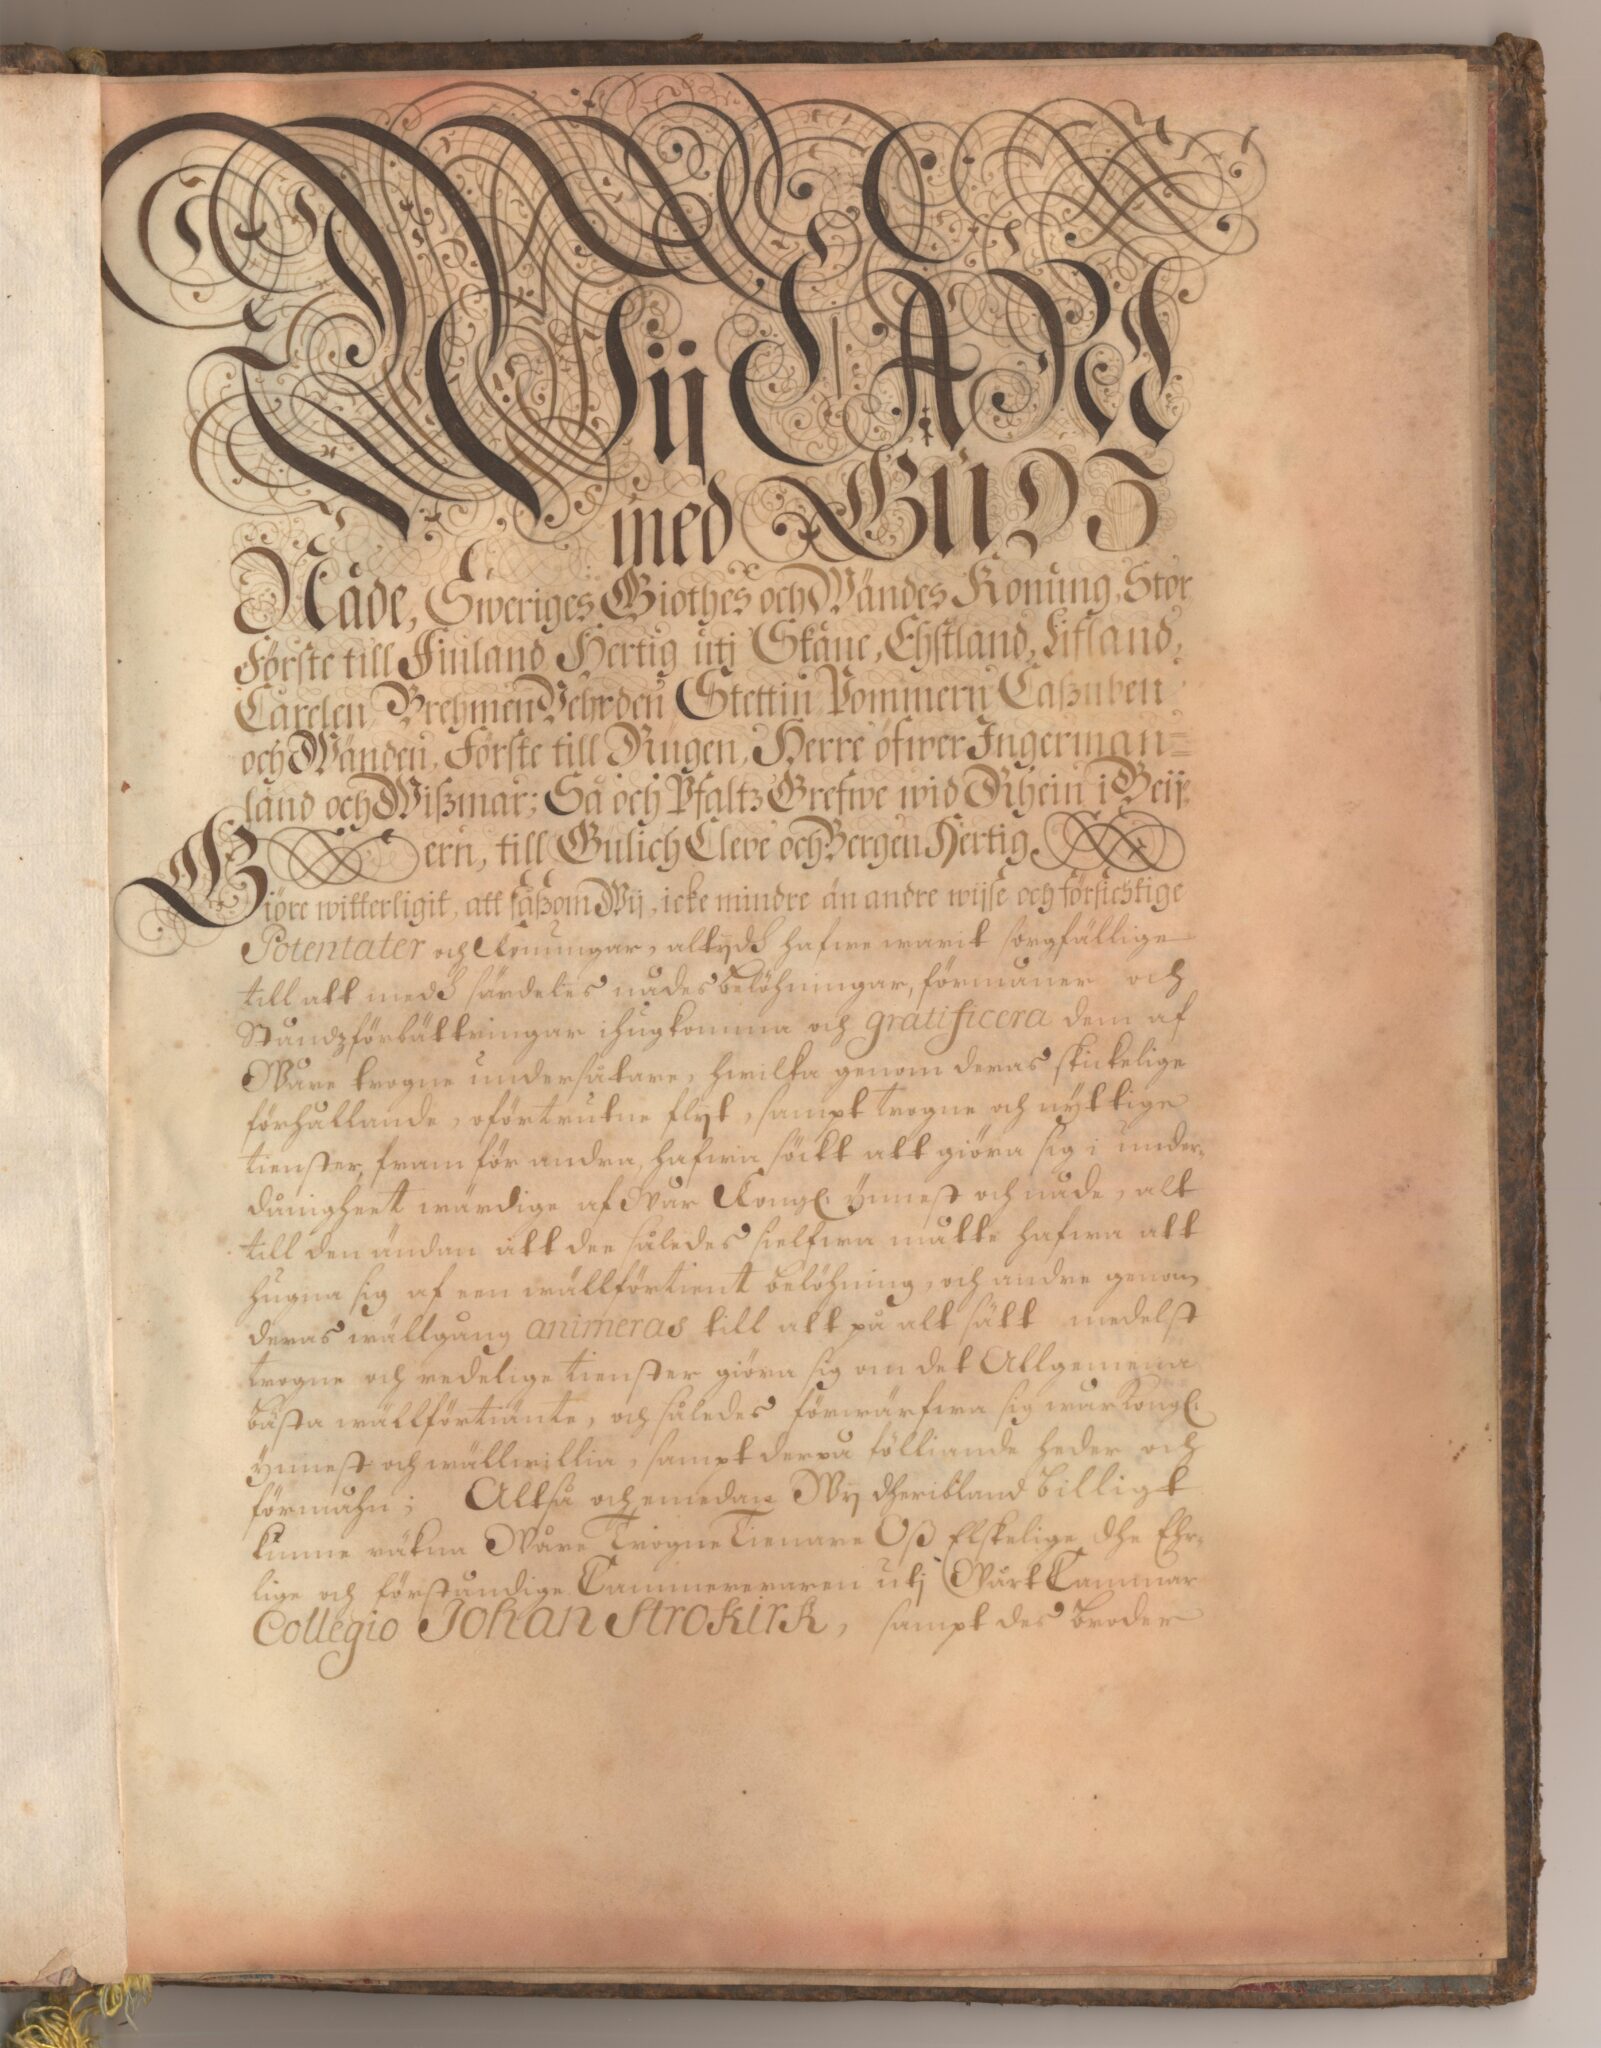 Wij CARL
med GUDZ
Nåde, Sweriges Giöthes och Wändes Konung, Stor
Förste till Finland, Hertig utj Skåne, Ehstland, Lifland,
Carelen, Brehmen, Vehrden, Stettin, Pommern, Caßuben
och Wänden, Förste till Rügen, Herre öfwer Ingerman=
land och Wißmar; Så och Pfaltz Grefwe wid Rhein i Beij=
ern, till Gülich Cleve och Bergen Hertig.
Giöre witterligit, att såßom Wij, icke mindre än andre wijse och försichtige
Potentater och Konungar, altijdh hafwe warit sorgfällige
till att medh särdeles nådes belöhningar, förmåner och
Ståndzförbättringar ihugkomma och gratificera dem af
Wåre trogne undersåtare, hwilka genom deras skickelige
förhållande, oförtrutne flijt, sampt trogne och nyttige
tienster, fram för andra, hafwa sökt att giöra sig i under-
dånigheet wärdige af Wår Kongl. ynnest och nåde, alt
till den ändan att dee således sielfwa måtte hafwa att
hugna sig af een wällförtient belöhning, och andre genom
deras wällgång animeras till att på alt sätt medelst
trogne och redelige tienster giöra sig om det Allgemena
bästa wällförtiänte, och således förwärfwa sig wår Kongl.
ynnest och wällwillia, sampt derpå fölliande heder och
förmåhn; Altså och emedan Wij dheribland billigt
kunne räkna Wåre Trogne Tienare Oß Elskelige dhe Ehr-
lige och förståndige Cammereraren utj Wårt Cammar
Collegio Johan Strokirk, sampt des broder